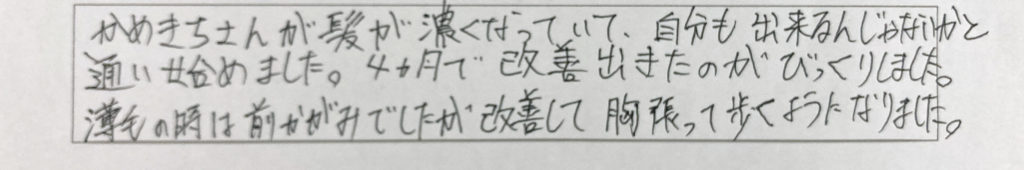 かめきちさんが髪が濃くなっていて、自分も出来るんじゃないかと
通い始めました。4ヶ月で改善出きたのがびっくりしました。
薄毛の時は前かがみでしたが改善して胸張って歩くようになりました。